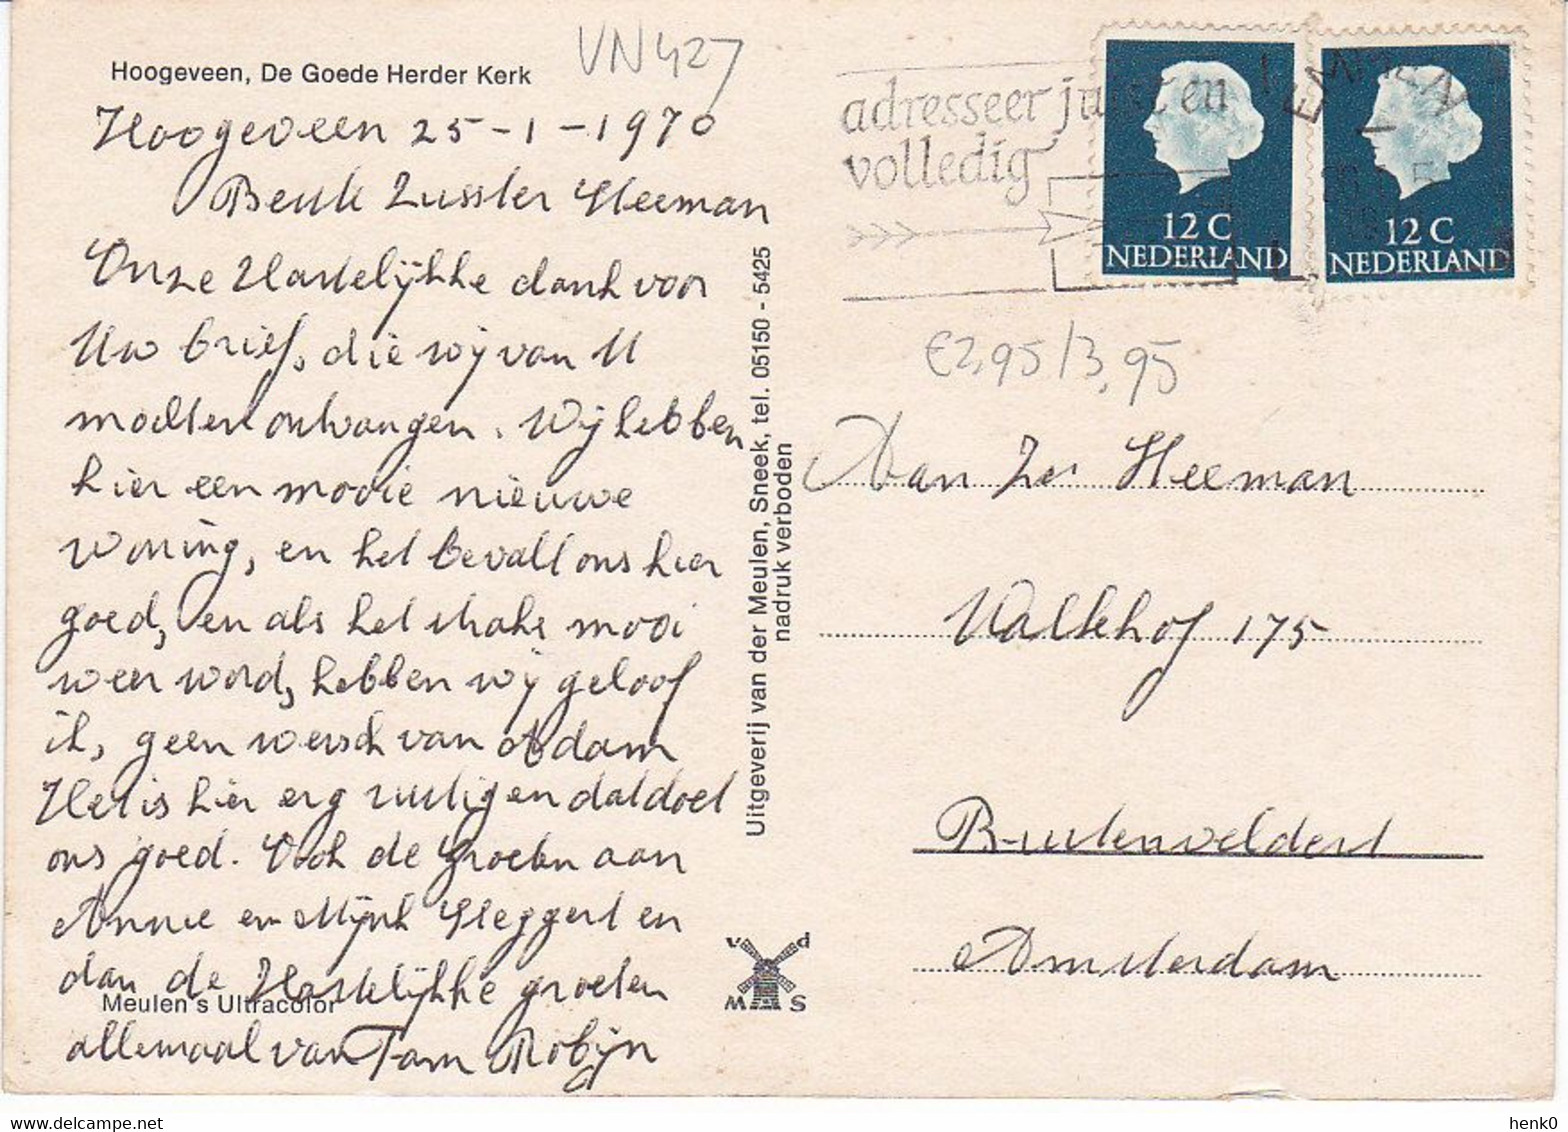 Hoogeveen, De Goede Herder Kerk
VN427
Hoogeveen 25-1-1970
Zuster Heeman
Onze Hartelijke dank voor
Uw brief, die wij van U
mochten ontvangen. Wij hebben
hier een mooie nieuwe
woning, en het bevalt ons hier
goed, en als het straks mooi
weer word, hebben wij geloof
ik, geen wensch van Adam
Het is hier erg rustig en dat doet
ons goed. Ook de groeten aan
Annie en Mijnh Heggert en
dan de Hartelijkke groeten
Meulen's Ultracolor
allemaal van Fam Robijn
Uitgeverij van der Meulen, Sneek, tel. 05150 - 5425
nadruk verboden
v d
M S
adresseer juist en
volledig
EMMEN
12 C
NEDERLAND
12 C
NEDERLAND
€2,95/3,95
Aan Zr Heeman
Valkhof 175
Buitenveldert
Amsterdam
henk0